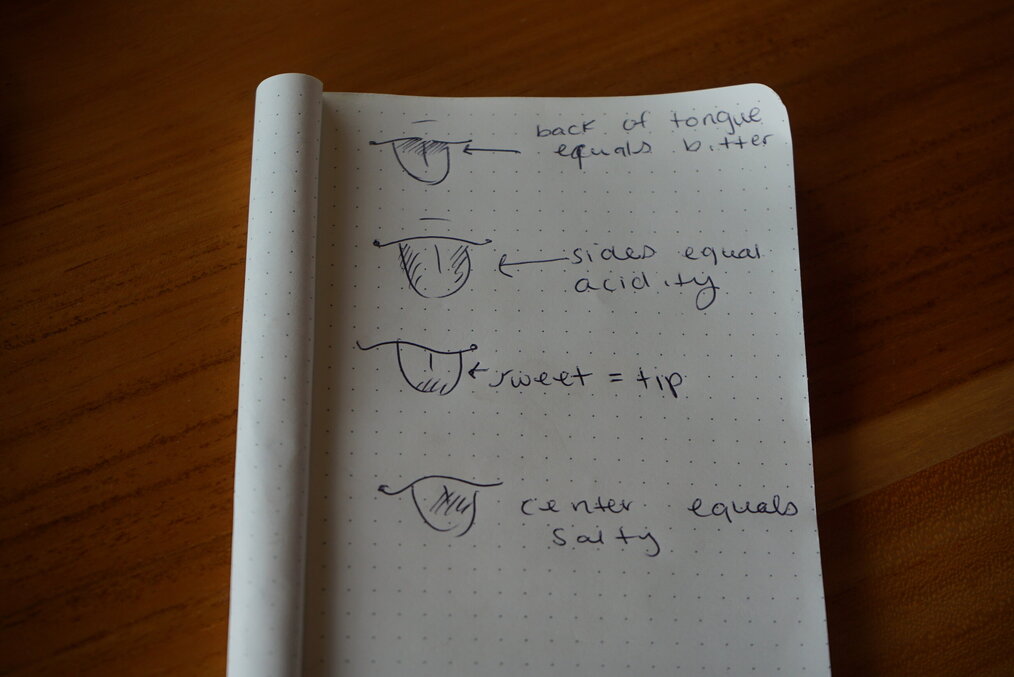 back of tongue
equals bitter
sides equal
acidity
sweet = tip
center equals
salty